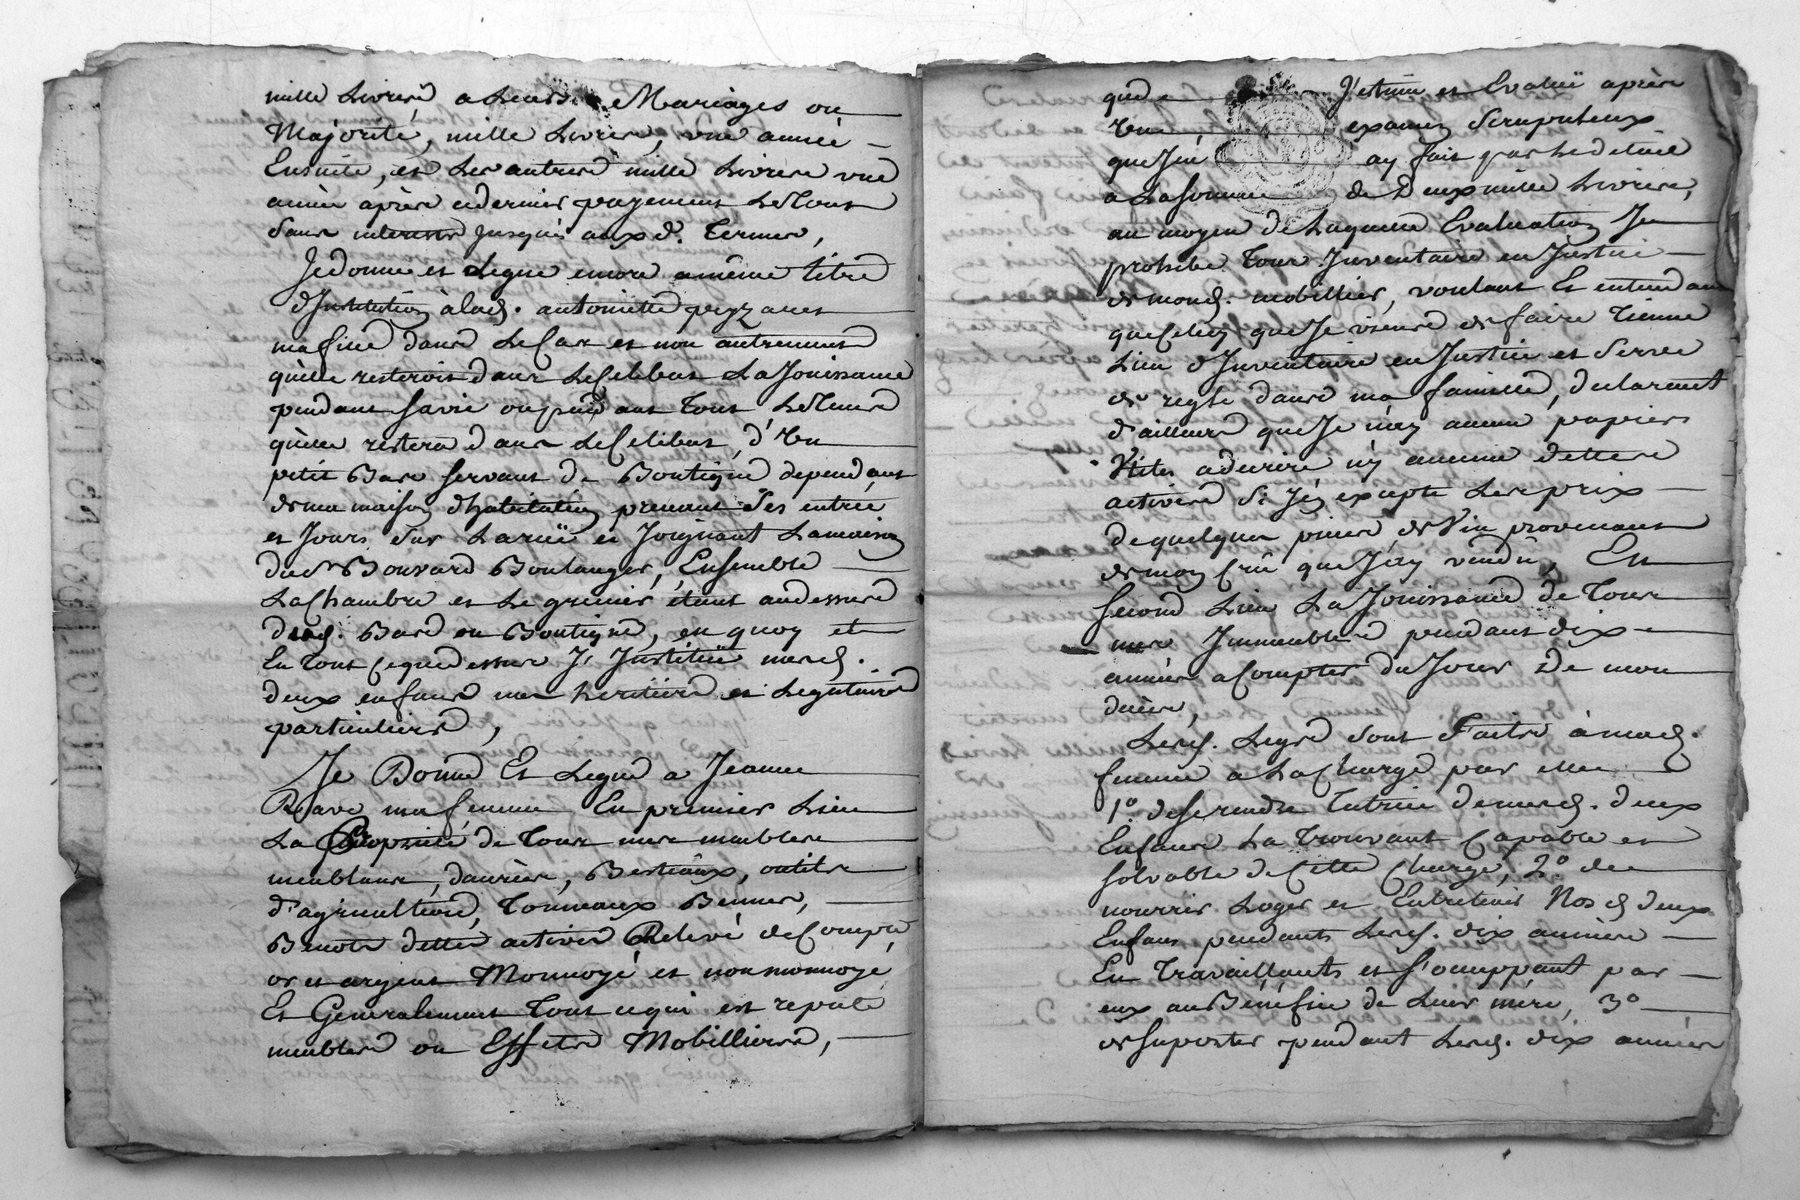 mille Livres a Leurs Mariages ou
Majorité, mille Livres, une année
Ensuite, et Les autres mille Livres une
année après cedernier payement LeTout
Sans interests jusques auxd. Termes,
Jedonne et Legue encore amême titre
d'Institution àlad. antoinette
mafille dans LeCas et non autrement
qu'elle resteroit dans LeCelibat LaJouissance
pendant savie ou pendant tout LeTems
qu'elle restera dans LeCelibat, d'Un
petit Bas servant de Boutique dependant
dema maison d'habitation prenant Ses entrée
et Jours Sur Larüe et Joignant Lamaison
dusr Bouvard Boulanger, Ensemble
LaChambre et Le grenier étant audessus
dud. Bas ou Boutique, en quoy et
En tout cequedessus J'Institüe mesd.
deux enfans mes heritiers et Legataires
particuliers,
Je Donne Et Legue a Jeanne
Rave ma femme En premier Lieu
La Propriété de Tous mes meubles
meublans, danrées, Bestiaux, outils
d'agriculture, Tonneaux Bennes,
Benots dettes actives Relevé deCompte
or et argent Monnoyé et non monnoyé
Et Generalement Tout cequi est reputé
meubles ou Effets Mobilliers,
que J'estime et Evalüe après
Une examen Scrupuleux
queJen ay fait par Ledetail
a Lasomme de Deux mille Livres,
au moyen de Laquelle Evaluation Je
prohibe Tout Inventaire en Justice
de mond. mobillier, voulant Et entendant
queCeluy queJe viens de faire Tienne
Lieu d'Inventaire en Justice et Serve
de regle dans ma famille, declarant
d'ailleurs queJe n'ay aucuns papiers
Utiles adecrire ny aucune dettes
actives Si Ce excepté Les prix
de quelques pieces de Vin provenant
demon Crû que J'ay vendu, En
second Lieu LaJouissance de Tous
mes Immeubles pendant dix
années aCompter du Jour de mon
décès,
Lesd. Legs sont Faits à mad.
femme a LaCharge par elle
1°. deserendre Tutrice demesd. deux
Enfans La Trouvant Capable et
solvable deCette Charge, 2°. de
nourrir Loger et Entretenir Nosd deux
Enfans pendants Lesd. dix années
En Travaillants et s'occuppant par
eux au Bénéfice de Leur mère, 3°
desuporter pendant Lesd. dix années